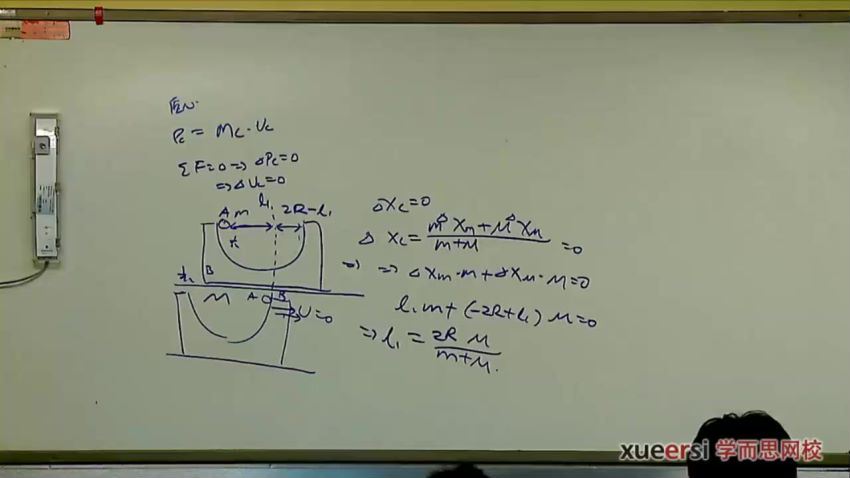 P_C = M_C · V_C
ΣF=0 => ΔP_C=0
=> ΔV_C=0
A m l₁ 2R-l₁
t₁
B
t₂ M A B
V=0
ΔX_C=0
ΔX_C = (mΔX_m + MΔX_M)/(m+M) = 0
=> => ΔX_m·m + ΔX_M·M=0
l₁m+(-2R+l₁)M=0
=> l₁ = 2RM/(m+M)
xueersi 学而思网校